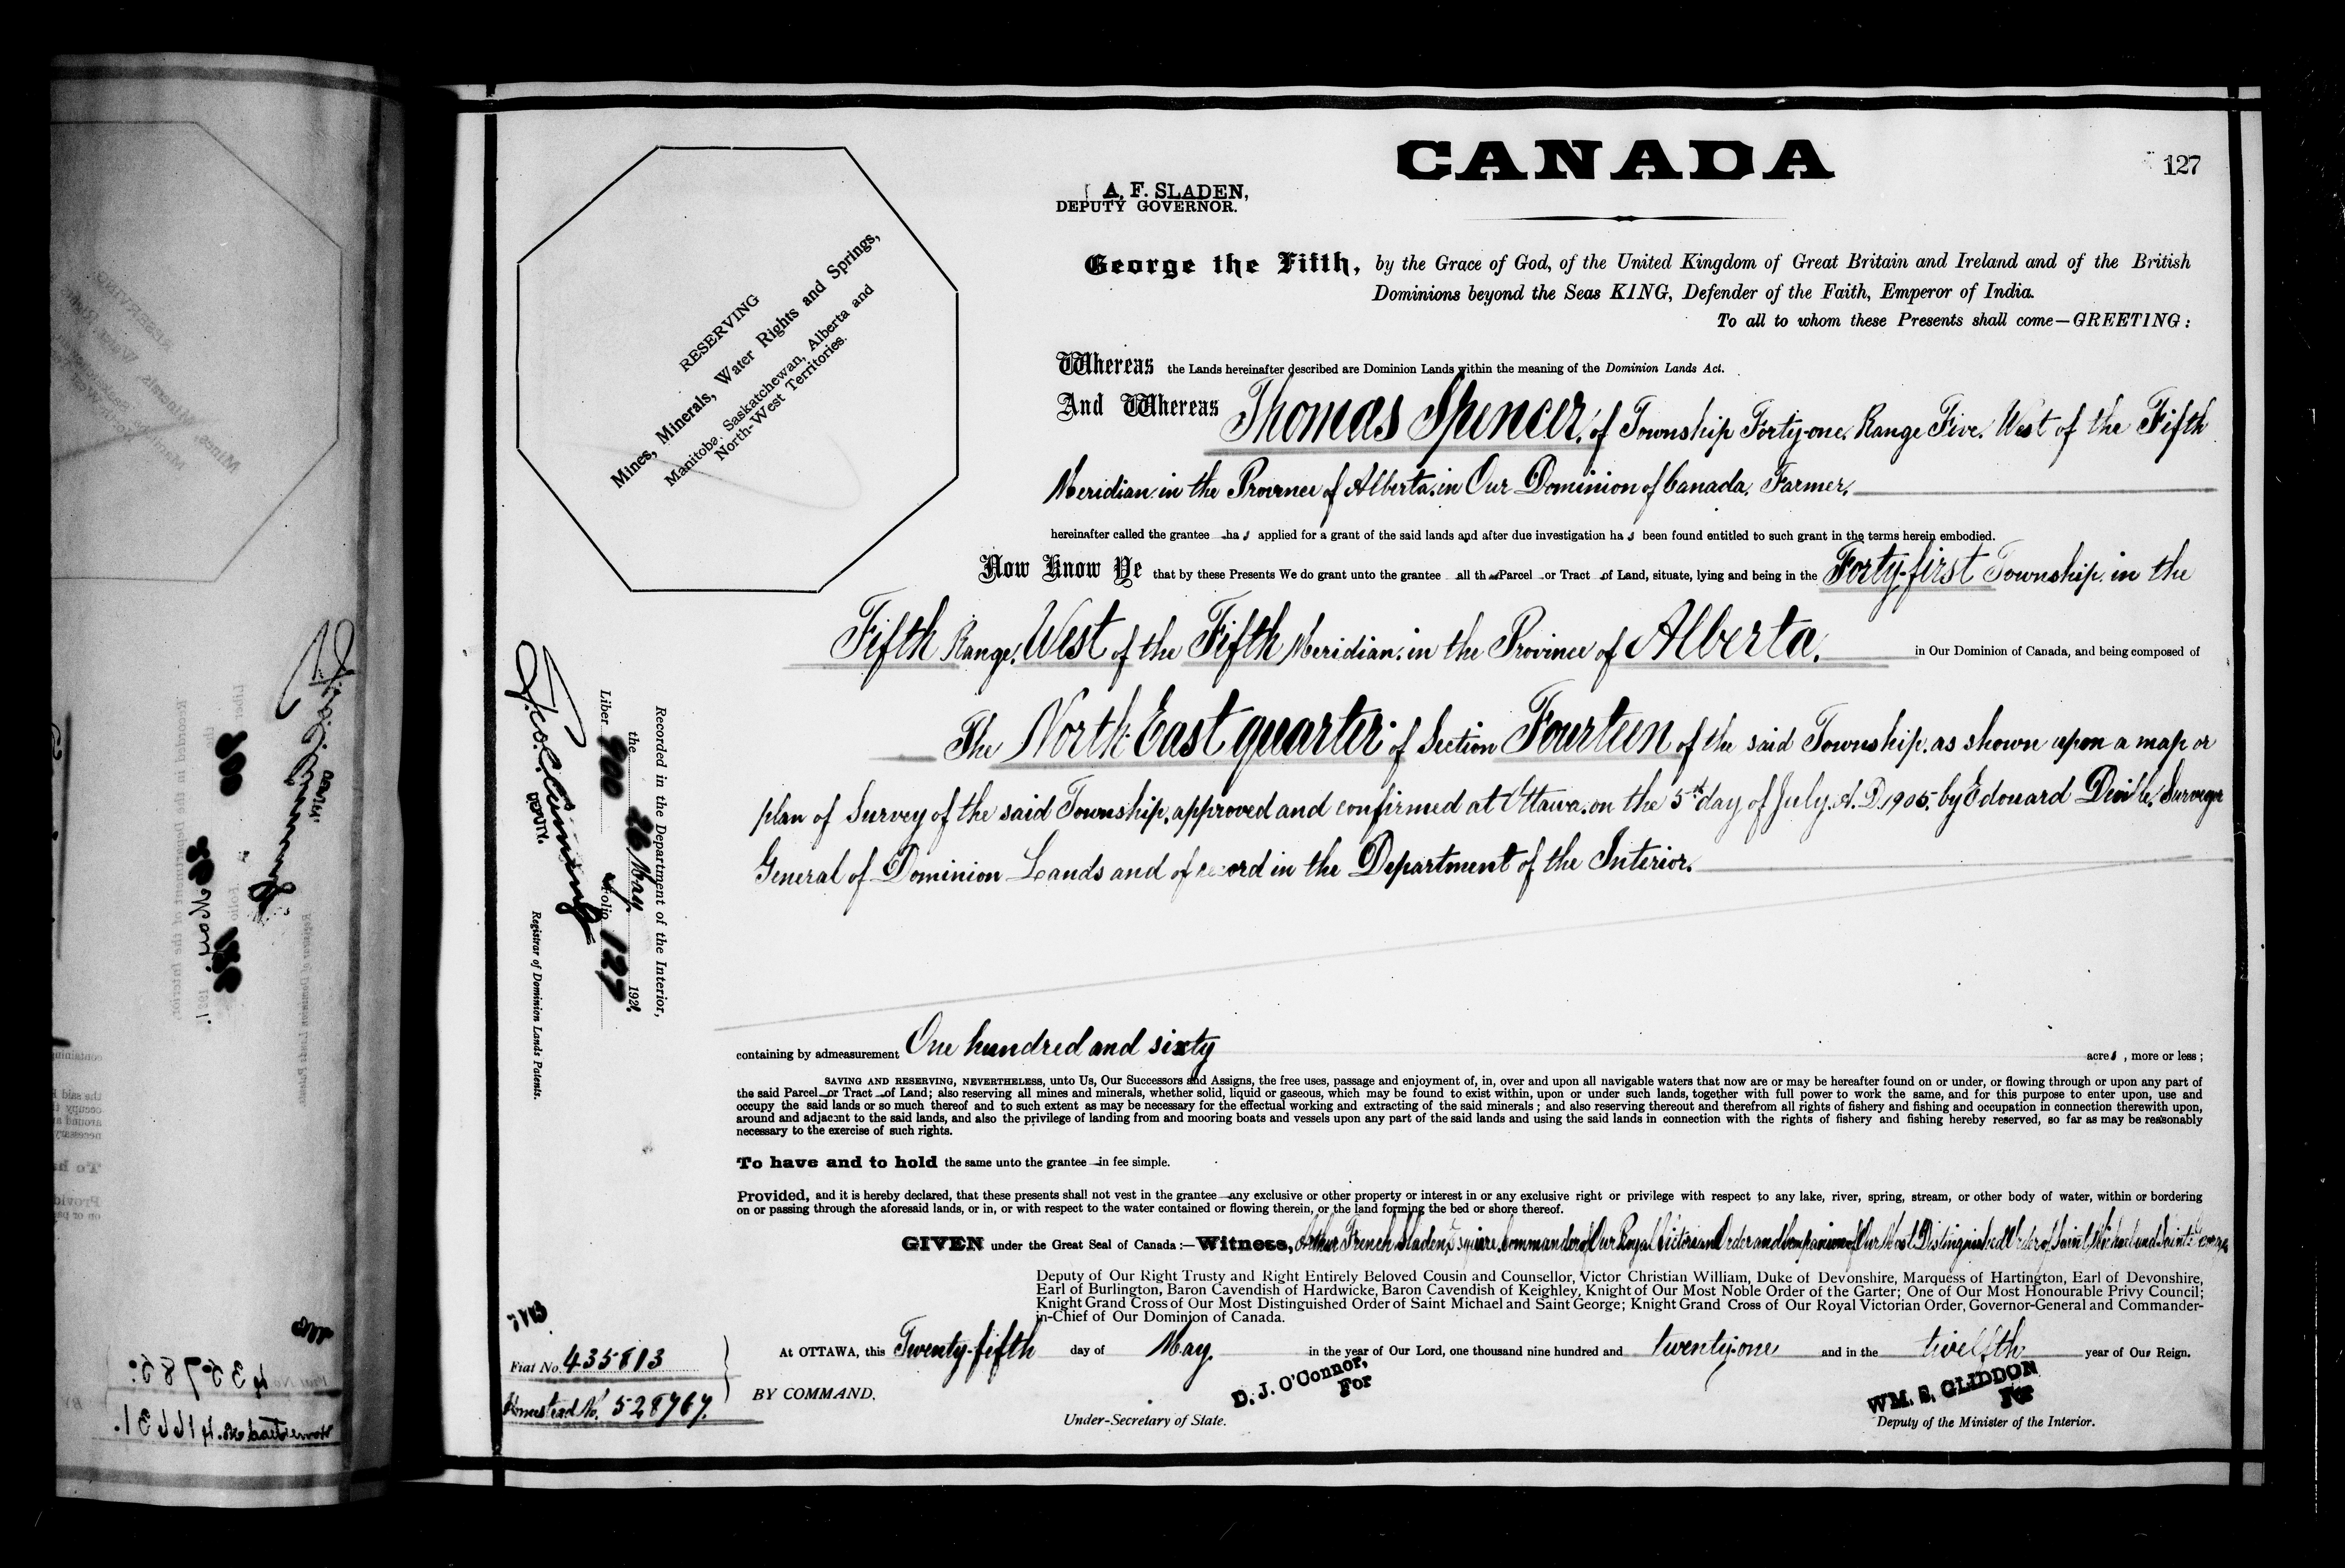 CANADA
127
A. F. SLADEN,
DEPUTY GOVERNOR.
RESERVING
Mines, Minerals, Water Rights and Springs,
Manitoba, Saskatchewan, Alberta and
North-West Territories.
George the Fifth, by the Grace of God, of the United Kingdom of Great Britain and Ireland and of the British
Dominions beyond the Seas KING, Defender of the Faith, Emperor of India.
To all to whom these Presents shall come—GREETING:
Whereas the Lands hereinafter described are Dominion Lands within the meaning of the Dominion Lands Act.
And Whereas Thomas Spencer, of Township Forty-one, Range Five, West of the Fifth
Meridian, in the Province of Alberta, in Our Dominion of Canada, Farmer,
hereinafter called the grantee has applied for a grant of the said lands and after due investigation has been found entitled to such grant in the terms herein embodied.
Now Know Ye that by these Presents We do grant unto the grantee all that Parcel or Tract of Land, situate, lying and being in the Forty-first Township, in the
Fifth Range, West of the Fifth Meridian, in the Province of Alberta, in Our Dominion of Canada, and being composed of
The North East quarter of Section Fourteen of the said Township, as shown upon a map or
plan of Survey of the said Township, approved and confirmed at Ottawa, on the 5th day of July, A.D. 1905, by Edouard Deville, Surveyor
General of Dominion Lands and of record in the Department of the Interior.
Recorded in the Department of the Interior,
the 26 May 1921.
Liber 700 Folio 127
DEPUTY.
Registrar of Dominion Lands Patents.
containing by admeasurement One hundred and sixty acres, more or less;
SAVING AND RESERVING, NEVERTHELESS, unto Us, Our Successors and Assigns, the free uses, passage and enjoyment of, in, over and upon all navigable waters that now are or may be hereafter found on or under, or flowing through or upon any part of
the said Parcel or Tract of Land; also reserving all mines and minerals, whether solid, liquid or gaseous, which may be found to exist within, upon or under such lands, together with full power to work the same, and for this purpose to enter upon, use and
occupy the said lands or so much thereof and to such extent as may be necessary for the effectual working and extracting of the said minerals; and also reserving thereout and therefrom all rights of fishery and fishing and occupation in connection therewith upon,
around and adjacent to the said lands, and also the privilege of landing from and mooring boats and vessels upon any part of the said lands and using the said lands in connection with the rights of fishery and fishing hereby reserved, so far as may be reasonably
necessary to the exercise of such rights.
To have and to hold the same unto the grantee in fee simple.
Provided, and it is hereby declared, that these presents shall not vest in the grantee any exclusive or other property or interest in or any exclusive right or privilege with respect to any lake, river, spring, stream, or other body of water, within or bordering
on or passing through the aforesaid lands, or in, or with respect to the water contained or flowing therein, or the land forming the bed or shore thereof.
GIVEN under the Great Seal of Canada:—Witness, Arthur French Sladen, Esquire, Commander of Our Royal Victorian Order and Companion of Our Most Distinguished Order of Saint Michael and Saint George
Deputy of Our Right Trusty and Right Entirely Beloved Cousin and Counsellor, Victor Christian William, Duke of Devonshire, Marquess of Hartington, Earl of Devonshire,
Earl of Burlington, Baron Cavendish of Hardwicke, Baron Cavendish of Keighley, Knight of Our Most Noble Order of the Garter; One of Our Most Honourable Privy Council;
Knight Grand Cross of Our Most Distinguished Order of Saint Michael and Saint George; Knight Grand Cross of Our Royal Victorian Order, Governor-General and Commander-
in-Chief of Our Dominion of Canada.
At OTTAWA, this Twenty-fifth day of May in the year of Our Lord, one thousand nine hundred and twenty-one and in the twelfth year of Our Reign.
Fiat No. 435813
Homestead No. 528767.
BY COMMAND,
D. J. O'Connor,
For
Under-Secretary of State.
WM. S. GLIDDON
For
Deputy of the Minister of the Interior.